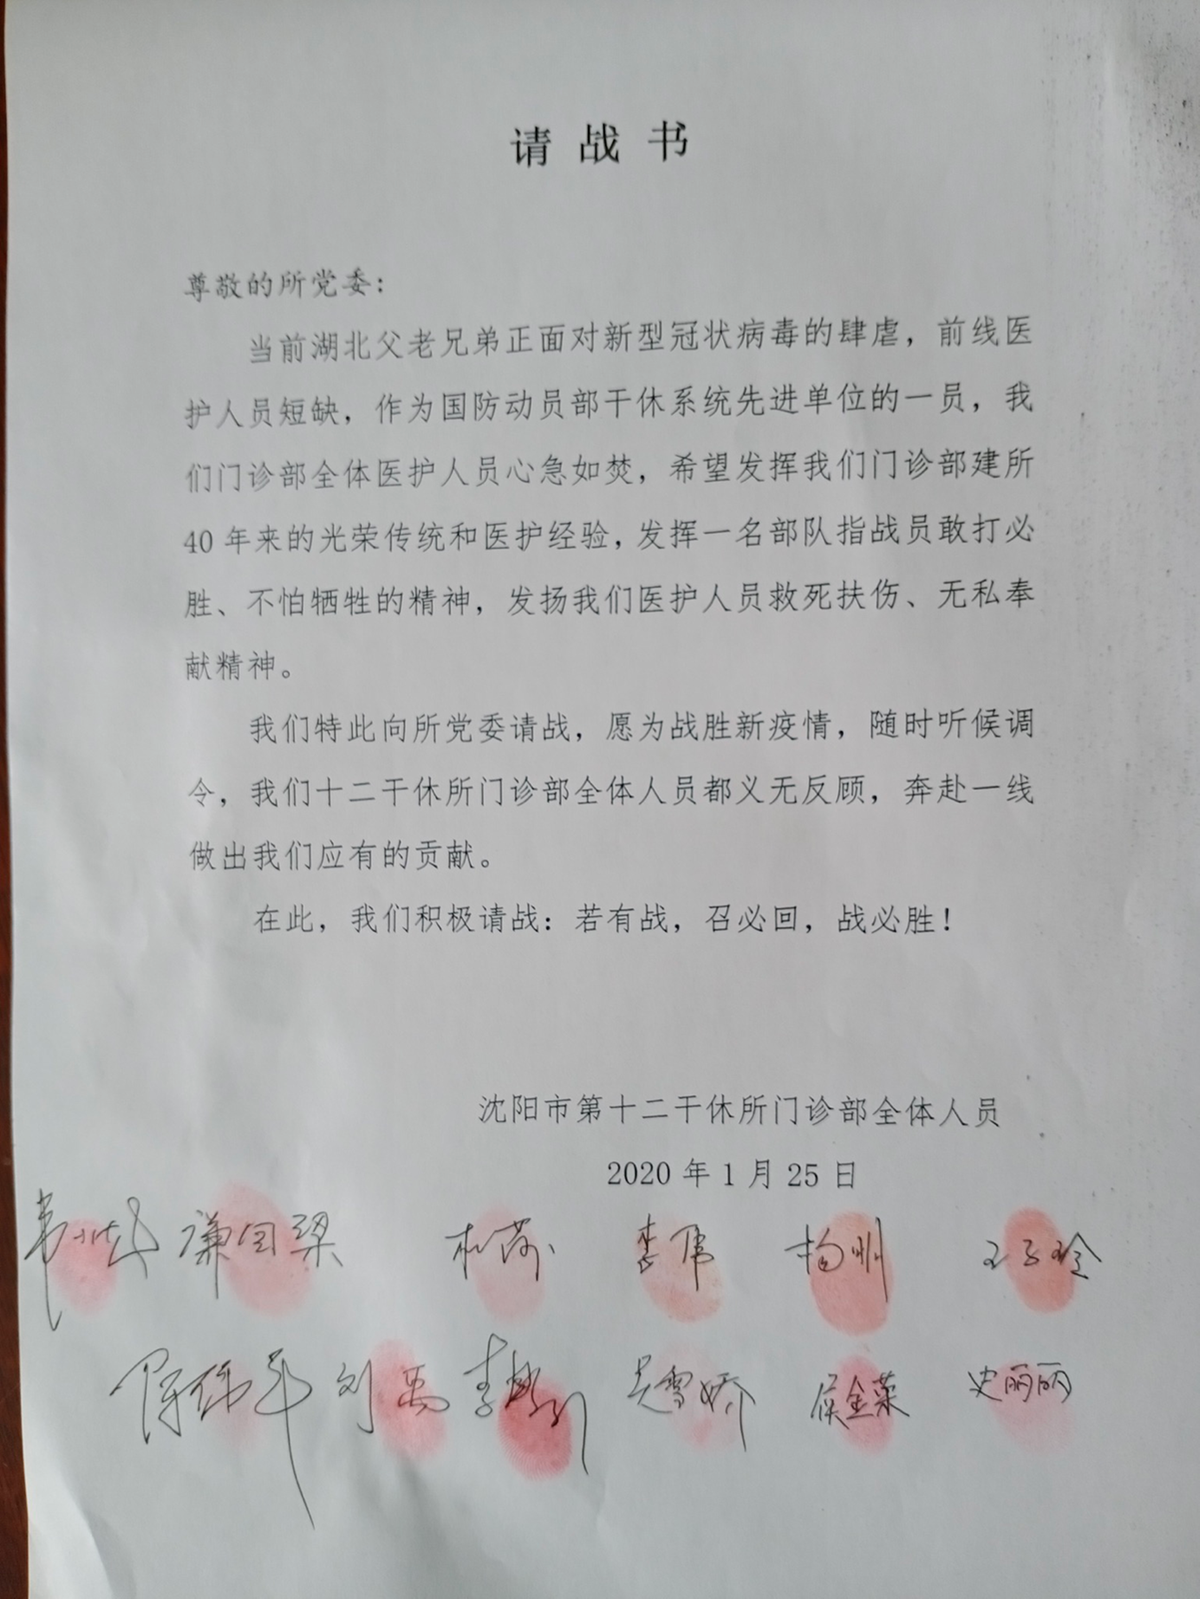 请战书
尊敬的所党委：
当前湖北父老兄弟正面对新型冠状病毒的肆虐，前线医
护人员短缺，作为国防动员部干休系统先进单位的一员，我
们门诊部全体医护人员心急如焚，希望发挥我们门诊部建所
40年来的光荣传统和医护经验，发挥一名部队指战员敢打必
胜、不怕牺牲的精神，发扬我们医护人员救死扶伤、无私奉
献精神。
我们特此向所党委请战，愿为战胜新疫情，随时听候调
令，我们十二干休所门诊部全体人员都义无反顾，奔赴一线
做出我们应有的贡献。
在此，我们积极请战：若有战，召必回，战必胜！
沈阳市第十二干休所门诊部全体人员
2020年1月25日
李伟 杨明 王子玲
刘禹 吴雪娇 侯金荣 史丽丽